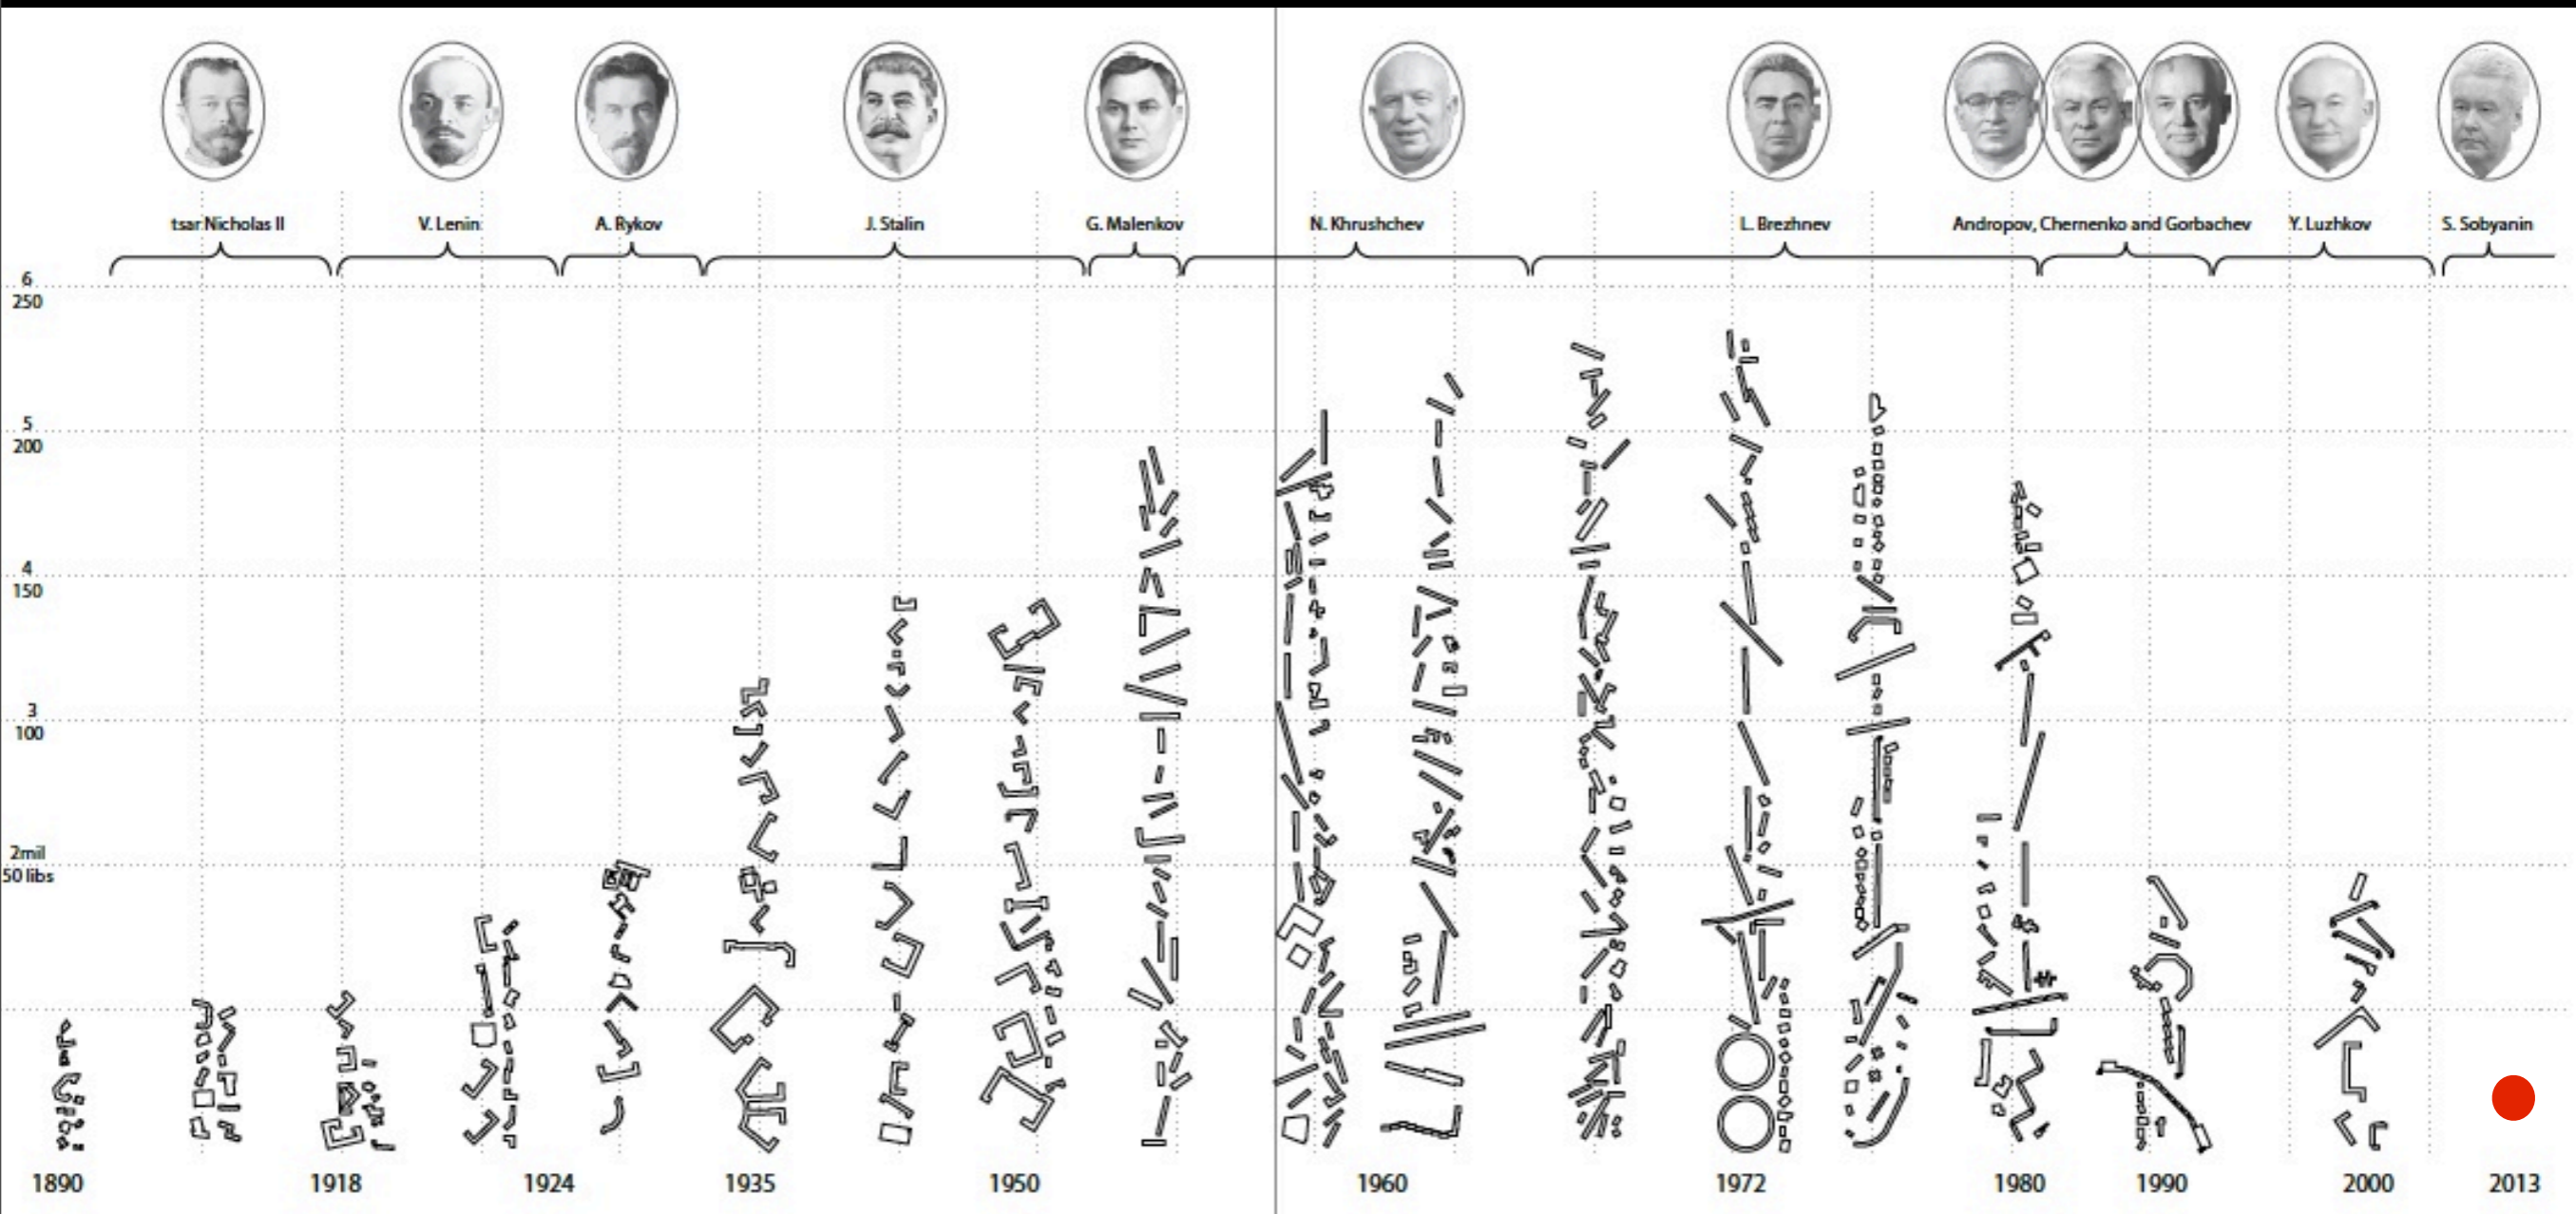 tsar Nicholas II
V. Lenin
A. Rykov
J. Stalin
G. Malenkov
N. Khrushchev
L. Brezhnev
Andropov, Chernenko and Gorbachev
Y. Luzhkov
S. Sobyanin
6
250
5
200
4
150
3
100
2mil
50 libs
1890
1918
1924
1935
1950
1960
1972
1980
1990
2000
2013